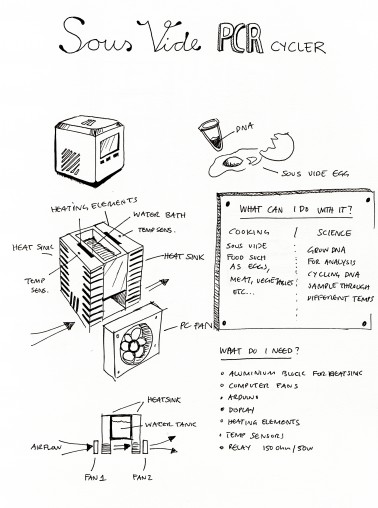 Sous Vide PCR CYCLER
DNA
SOUS VIDE EGG
HEATING ELEMENTS
WATER BATH
TEMP SENS.
HEAT SINK
HEAT SINK
TEMP
SENS.
PC FAN
WHAT CAN I DO WITH IT?
COOKING / SCIENCE
SOUS VIDE
FOOD SUCH
AS EGGS,
MEAT, VEGETABLES
ETC...
GROW DNA
FOR ANALYSIS
CYCLING DNA
SAMPLE THROUGH
DIFFERENT TEMPS
WHAT DO I NEED?
ALUMINIUM BLOCK FOR HEATSINK
COMPUTER FANS
ARDUINO
DISPLAY
HEATING ELEMENTS
TEMP SENSORS
RELAY 150 ohm / 50W
HEATSINK
WATER TANK
AIRFLOW
FAN 1
FAN 2